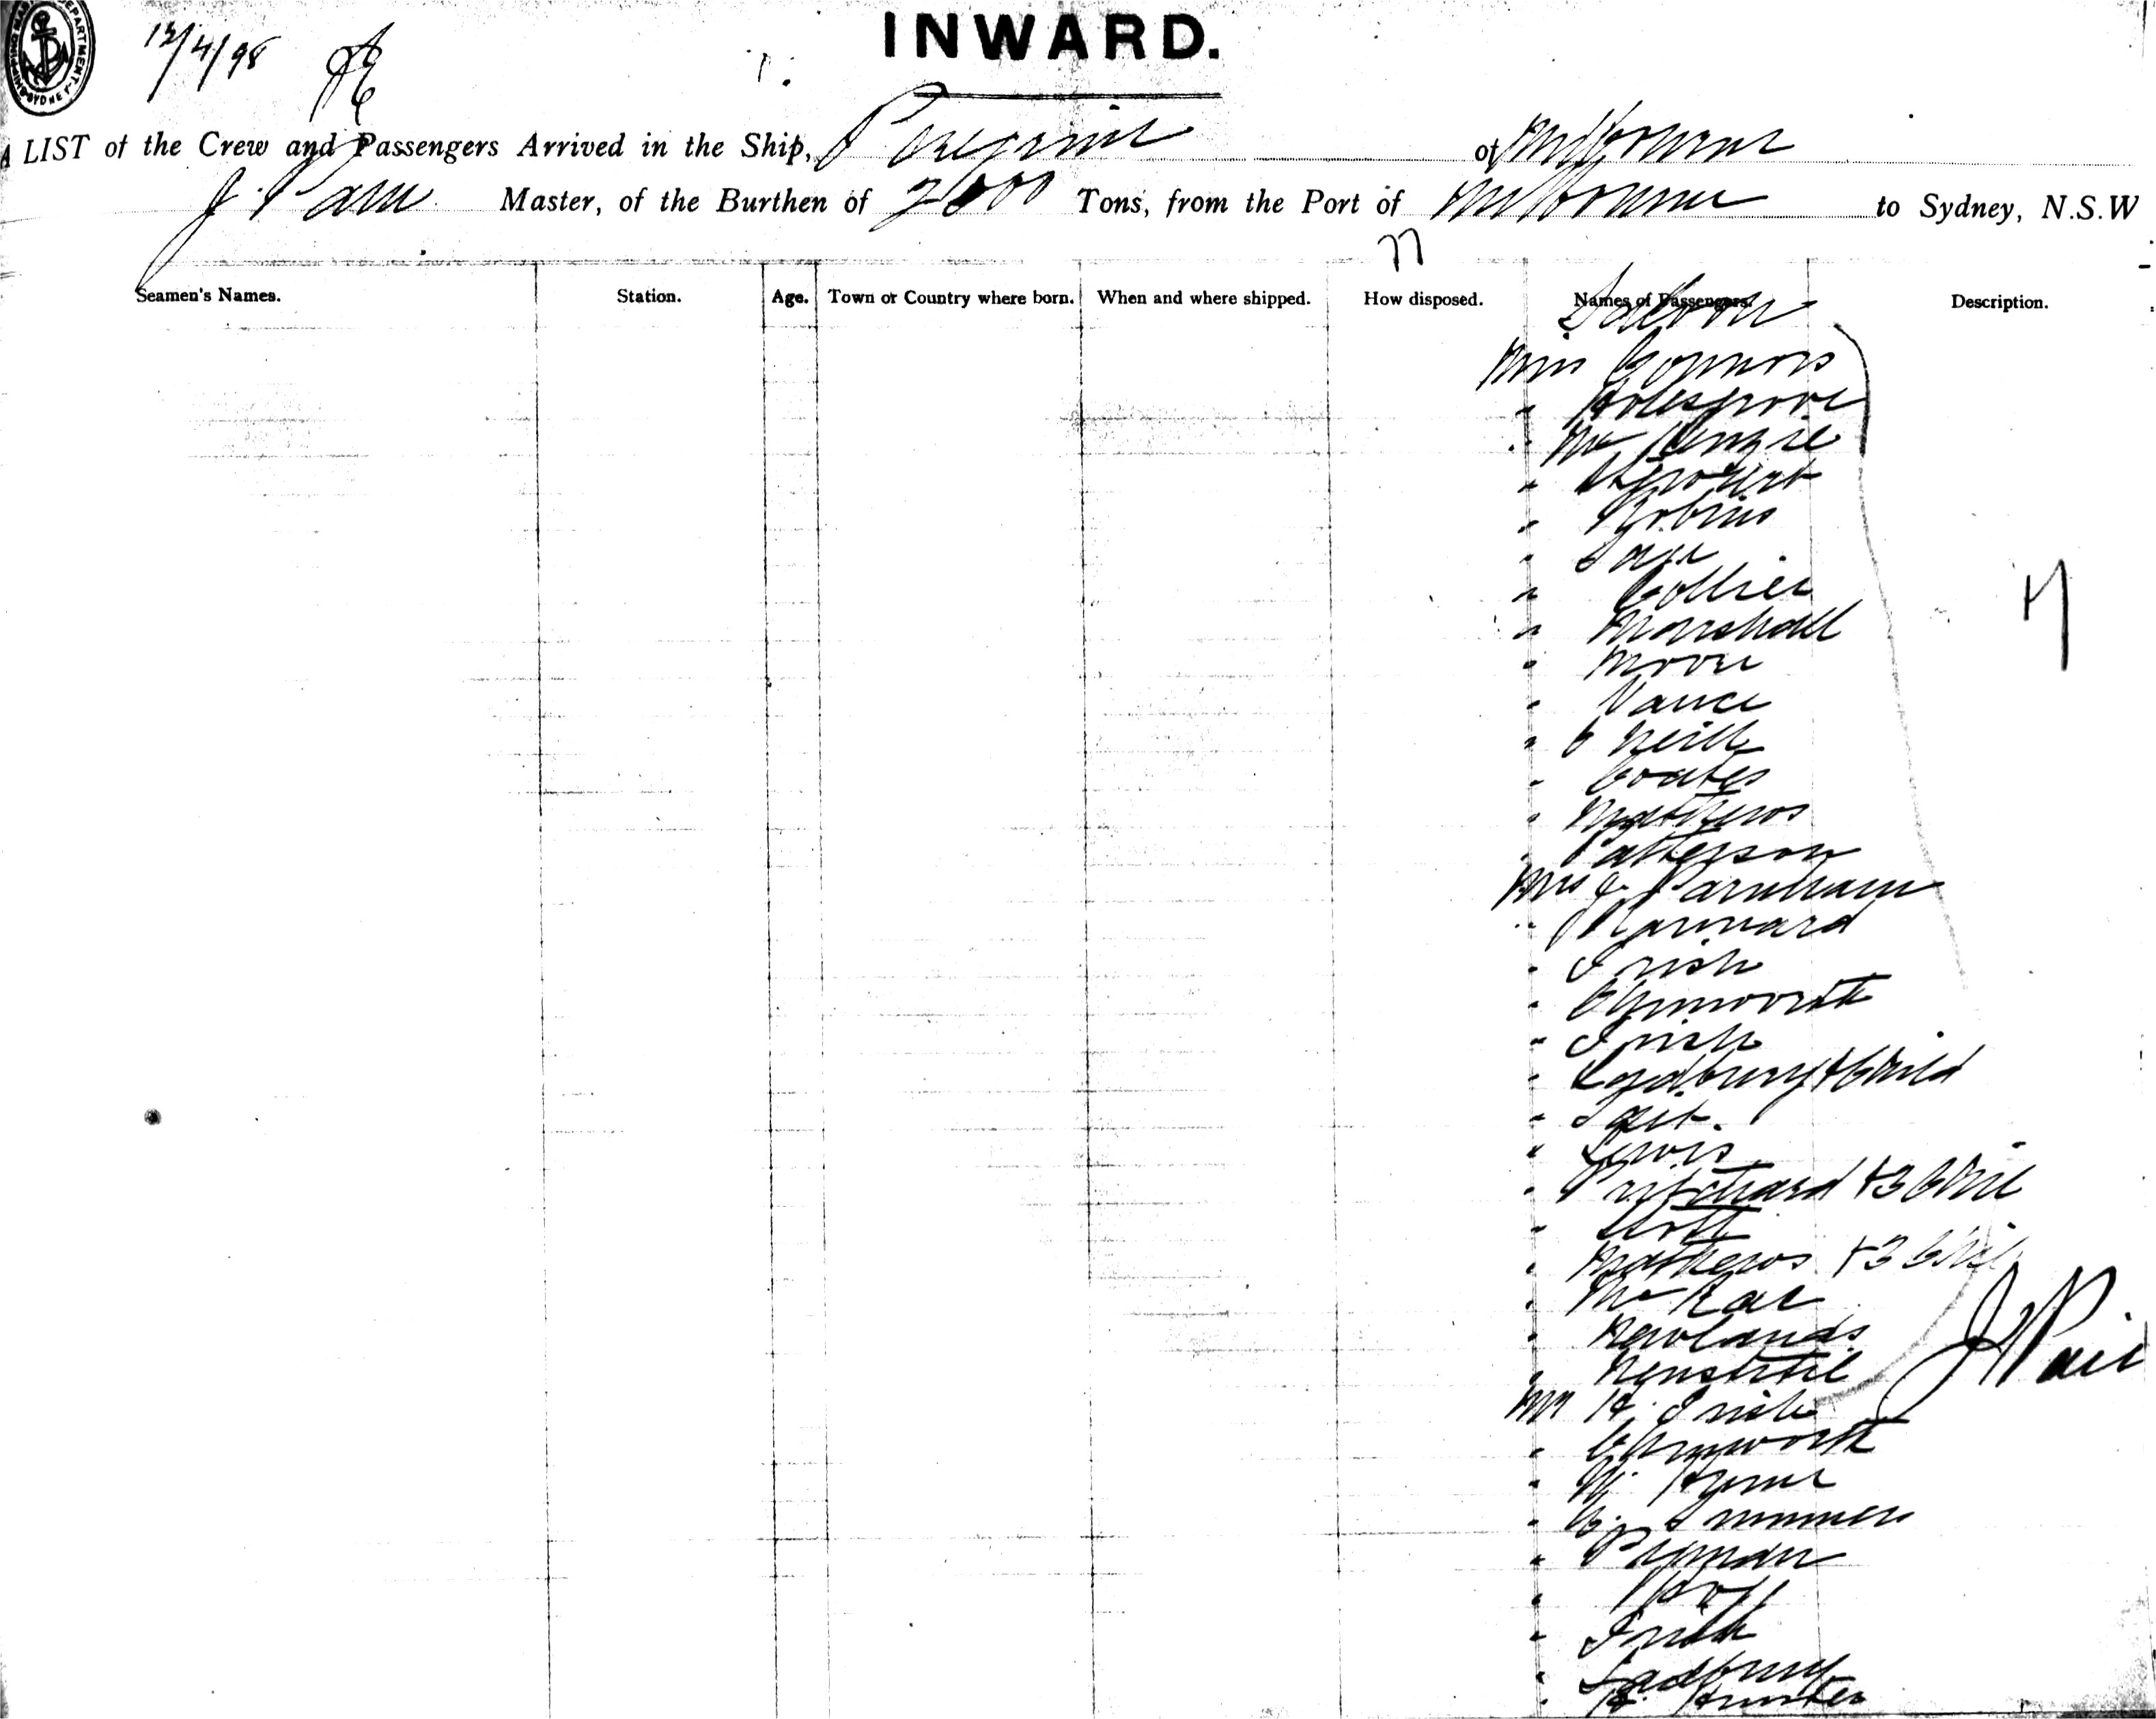 SHIPPING MASTER'S DEPARTMENT SYDNEY
12/4/98
INWARD.
A LIST of the Crew and Passengers Arrived in the Ship, Peregrine of Melbourne
J. Pain Master, of the Burthen of Tons, from the Port of Melbourne to Sydney, N.S.W
77
Seamen's Names. Station. Age. Town or Country where born. When and where shipped. How disposed. Names of Passengers. Description.
Saloon
Miss Connors
" Holesgrove
" Mc Kenzie
" Sproust
" Robins
" Page
" Collier
" Marshall
" Moore
" Vance
" O Neill
" Coates
" Mathews
" Patterson
Mrs Parnham
" Kannard
" Irish
" Elmworth
" Irish
" Ledbury & Child
" Tait
" Lewis
" Pritchard & 3 Chil
" Scott
" Mathews & 3 Chil
" Mc Rae
" Newlands
Mr H. Irish
" Elmworth
" Summers
" Pegman
" Irish
" Ladbury
" H. Hunter
J Pain